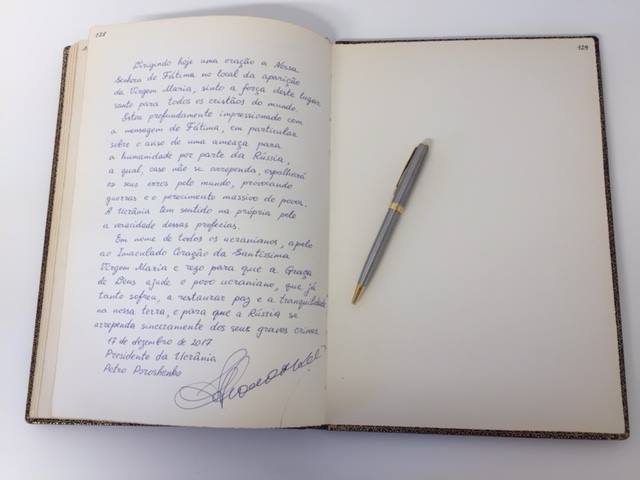 128
Dirigindo hoje uma oração a Nossa
Senhora de Fátima no local da aparição
da Virgem Maria, sinto a força deste lugar
santo para todos os cristãos do mundo.
Estou profundamente impressionado com
a mensagem de Fátima, em particular
sobre o aviso de uma ameaça para
a humanidade por parte da Rússia,
a qual, caso não se arrependa, espalhará
os seus erros pelo mundo, provocando
guerras e o perecimento massivo de povos.
A Ucrânia tem sentido na própria pele
a veracidade dessas profecias.
Em nome de todos os ucranianos, apelo
ao Imaculado Coração da Santíssima
Virgem Maria e rezo para que a Graça
de Deus ajude o povo ucraniano, que já
tanto sofreu, a restaurar paz e a tranquilidade
na nossa terra, e para que a Rússia se
arrependa sinceramente dos seus graves crimes.
17 de dezembro de 2017
Presidente da Ucrânia
Petro Poroshenko
129